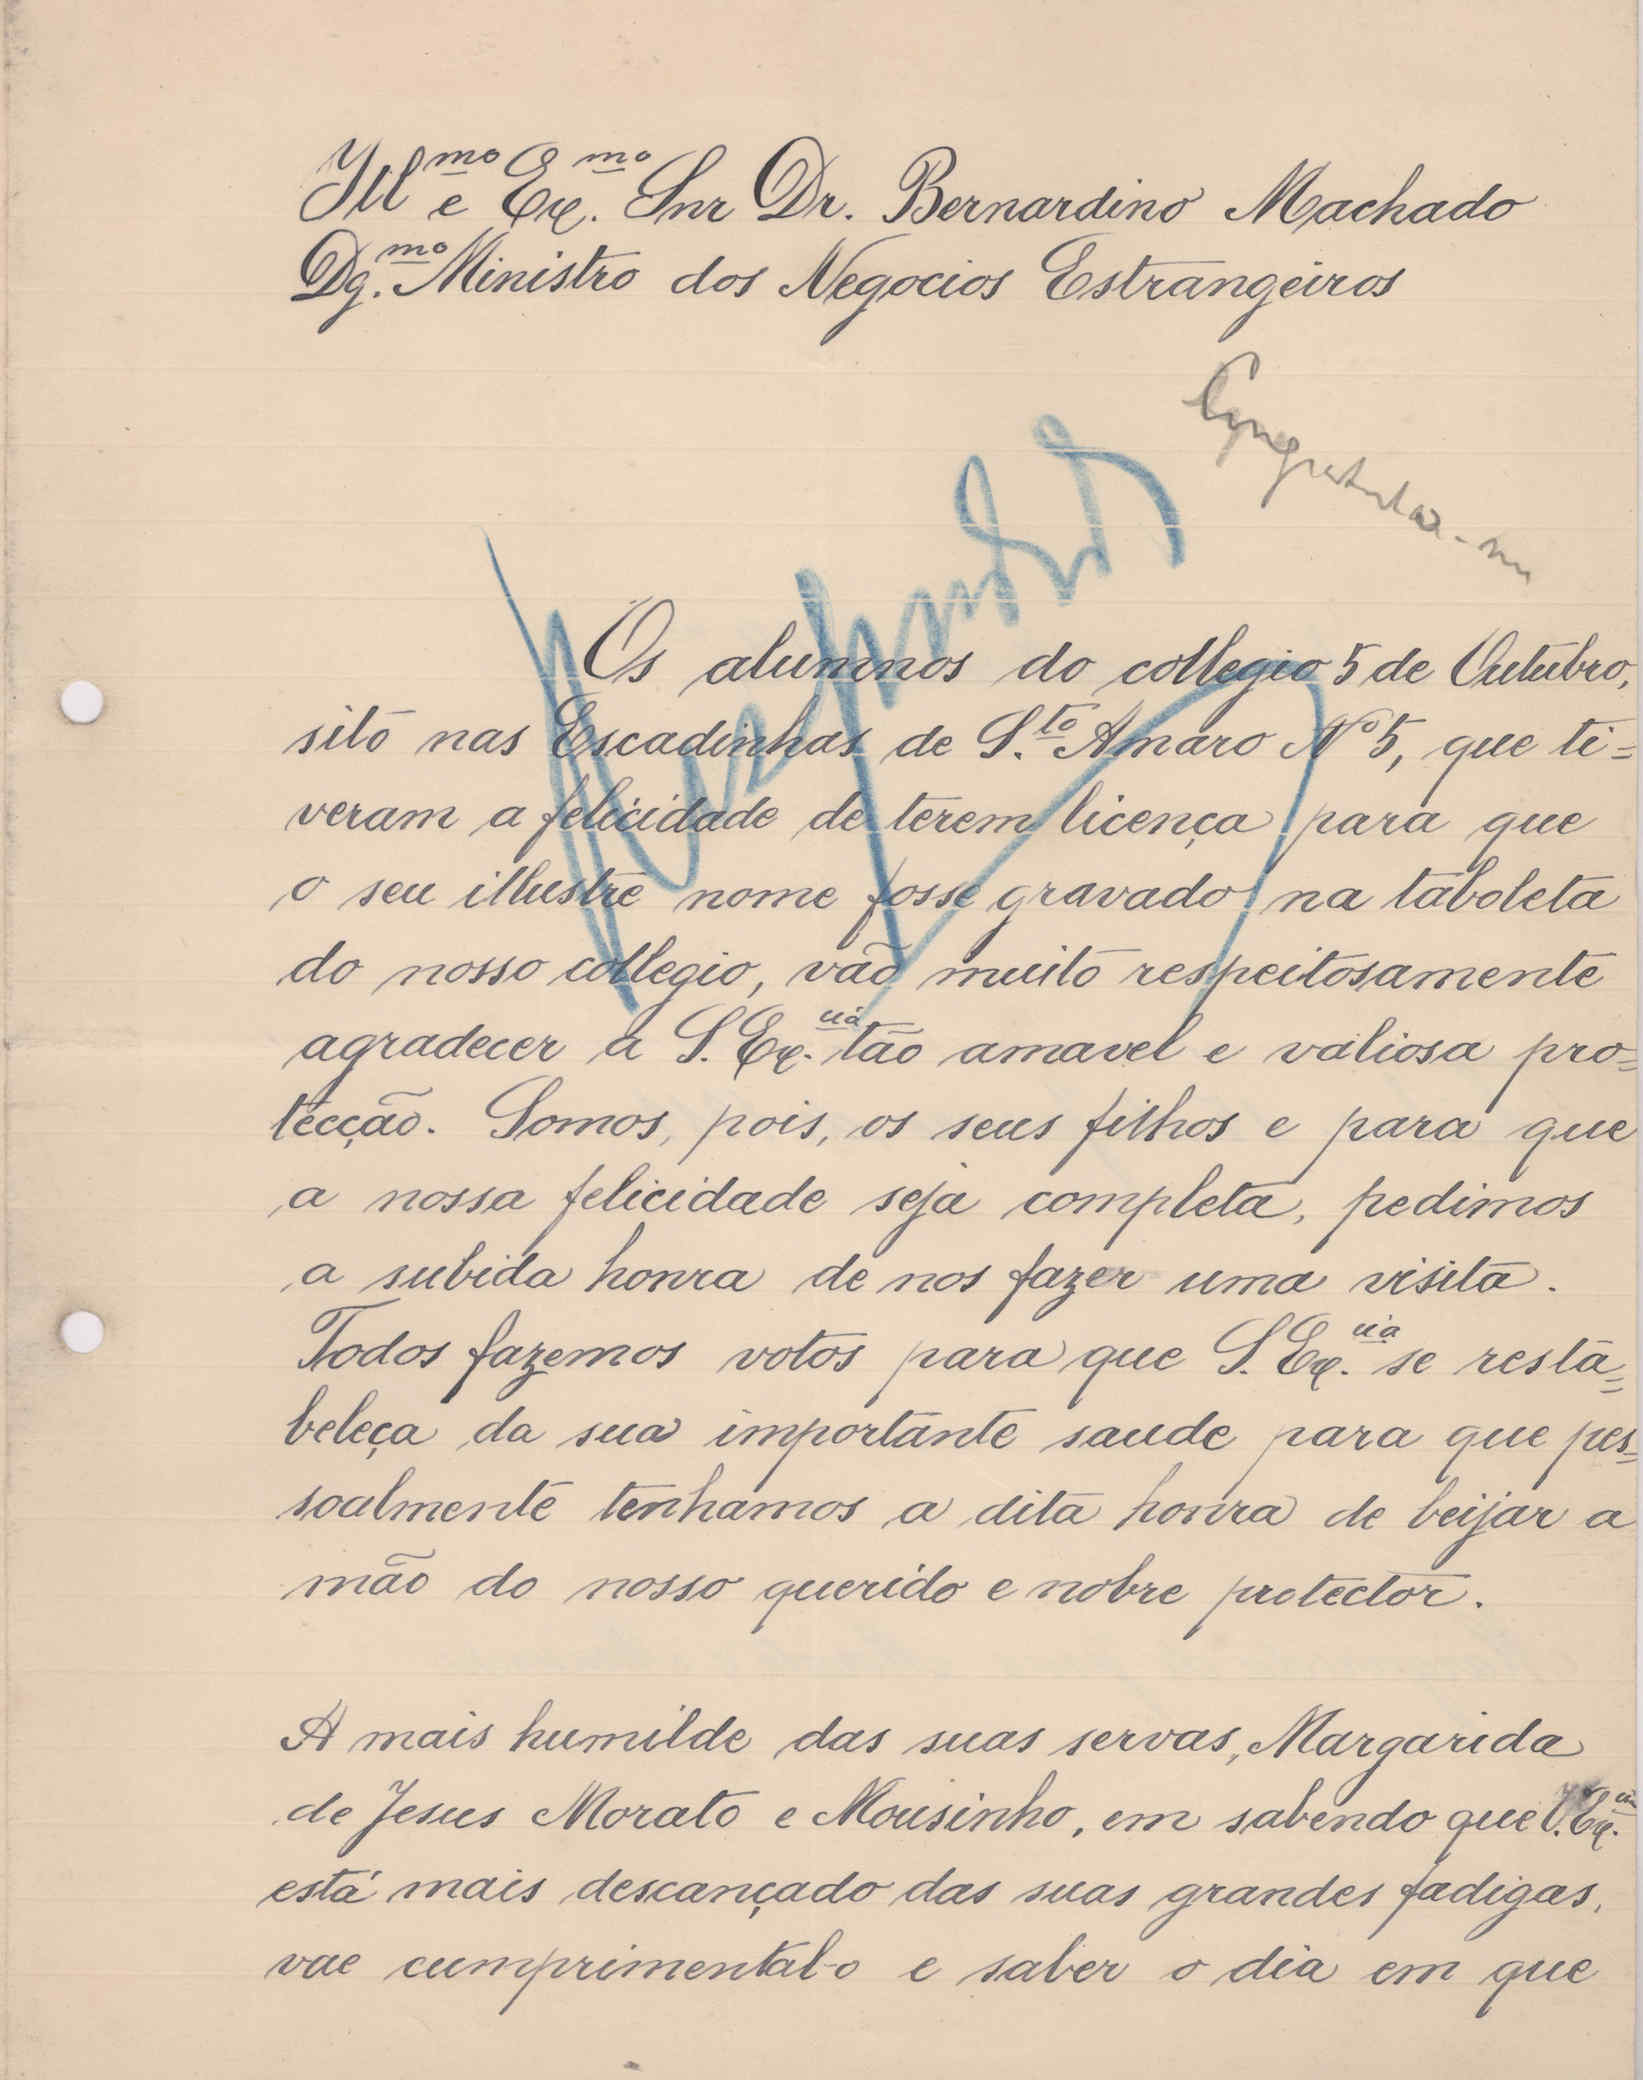 Ill.mo e Ex.mo Snr Dr. Bernardino Machado
Dg.mo Ministro dos Negocios Estrangeiros
Os alumnos do collegio 5 de Outubro,
sito nas Escadinhas de S.to Amaro Nº 5, que ti=
veram a felicidade de terem licença para que
o seu illustre nome fosse gravado na taboleta
do nosso collegio, vão muito respeitosamente
agradecer a S. Ex.cia tão amavel e valiosa pro=
tecção. Somos, pois, os seus filhos e para que
a nossa felicidade seja completa, pedimos
a subida honra de nos fazer uma visita.
Todos fazemos votos para que S. Ex.cia se resta=
beleça da sua importante saude para que pes=
soalmente tenhamos a dita honra de beijar a
mão do nosso querido e nobre protector.
A mais humilde das suas servas, Margarida
de Jesus Morato e Mousinho, em sabendo que V. Ex.cia
está mais descançado das suas grandes fadigas,
vae cumprimental-o e saber o dia em que